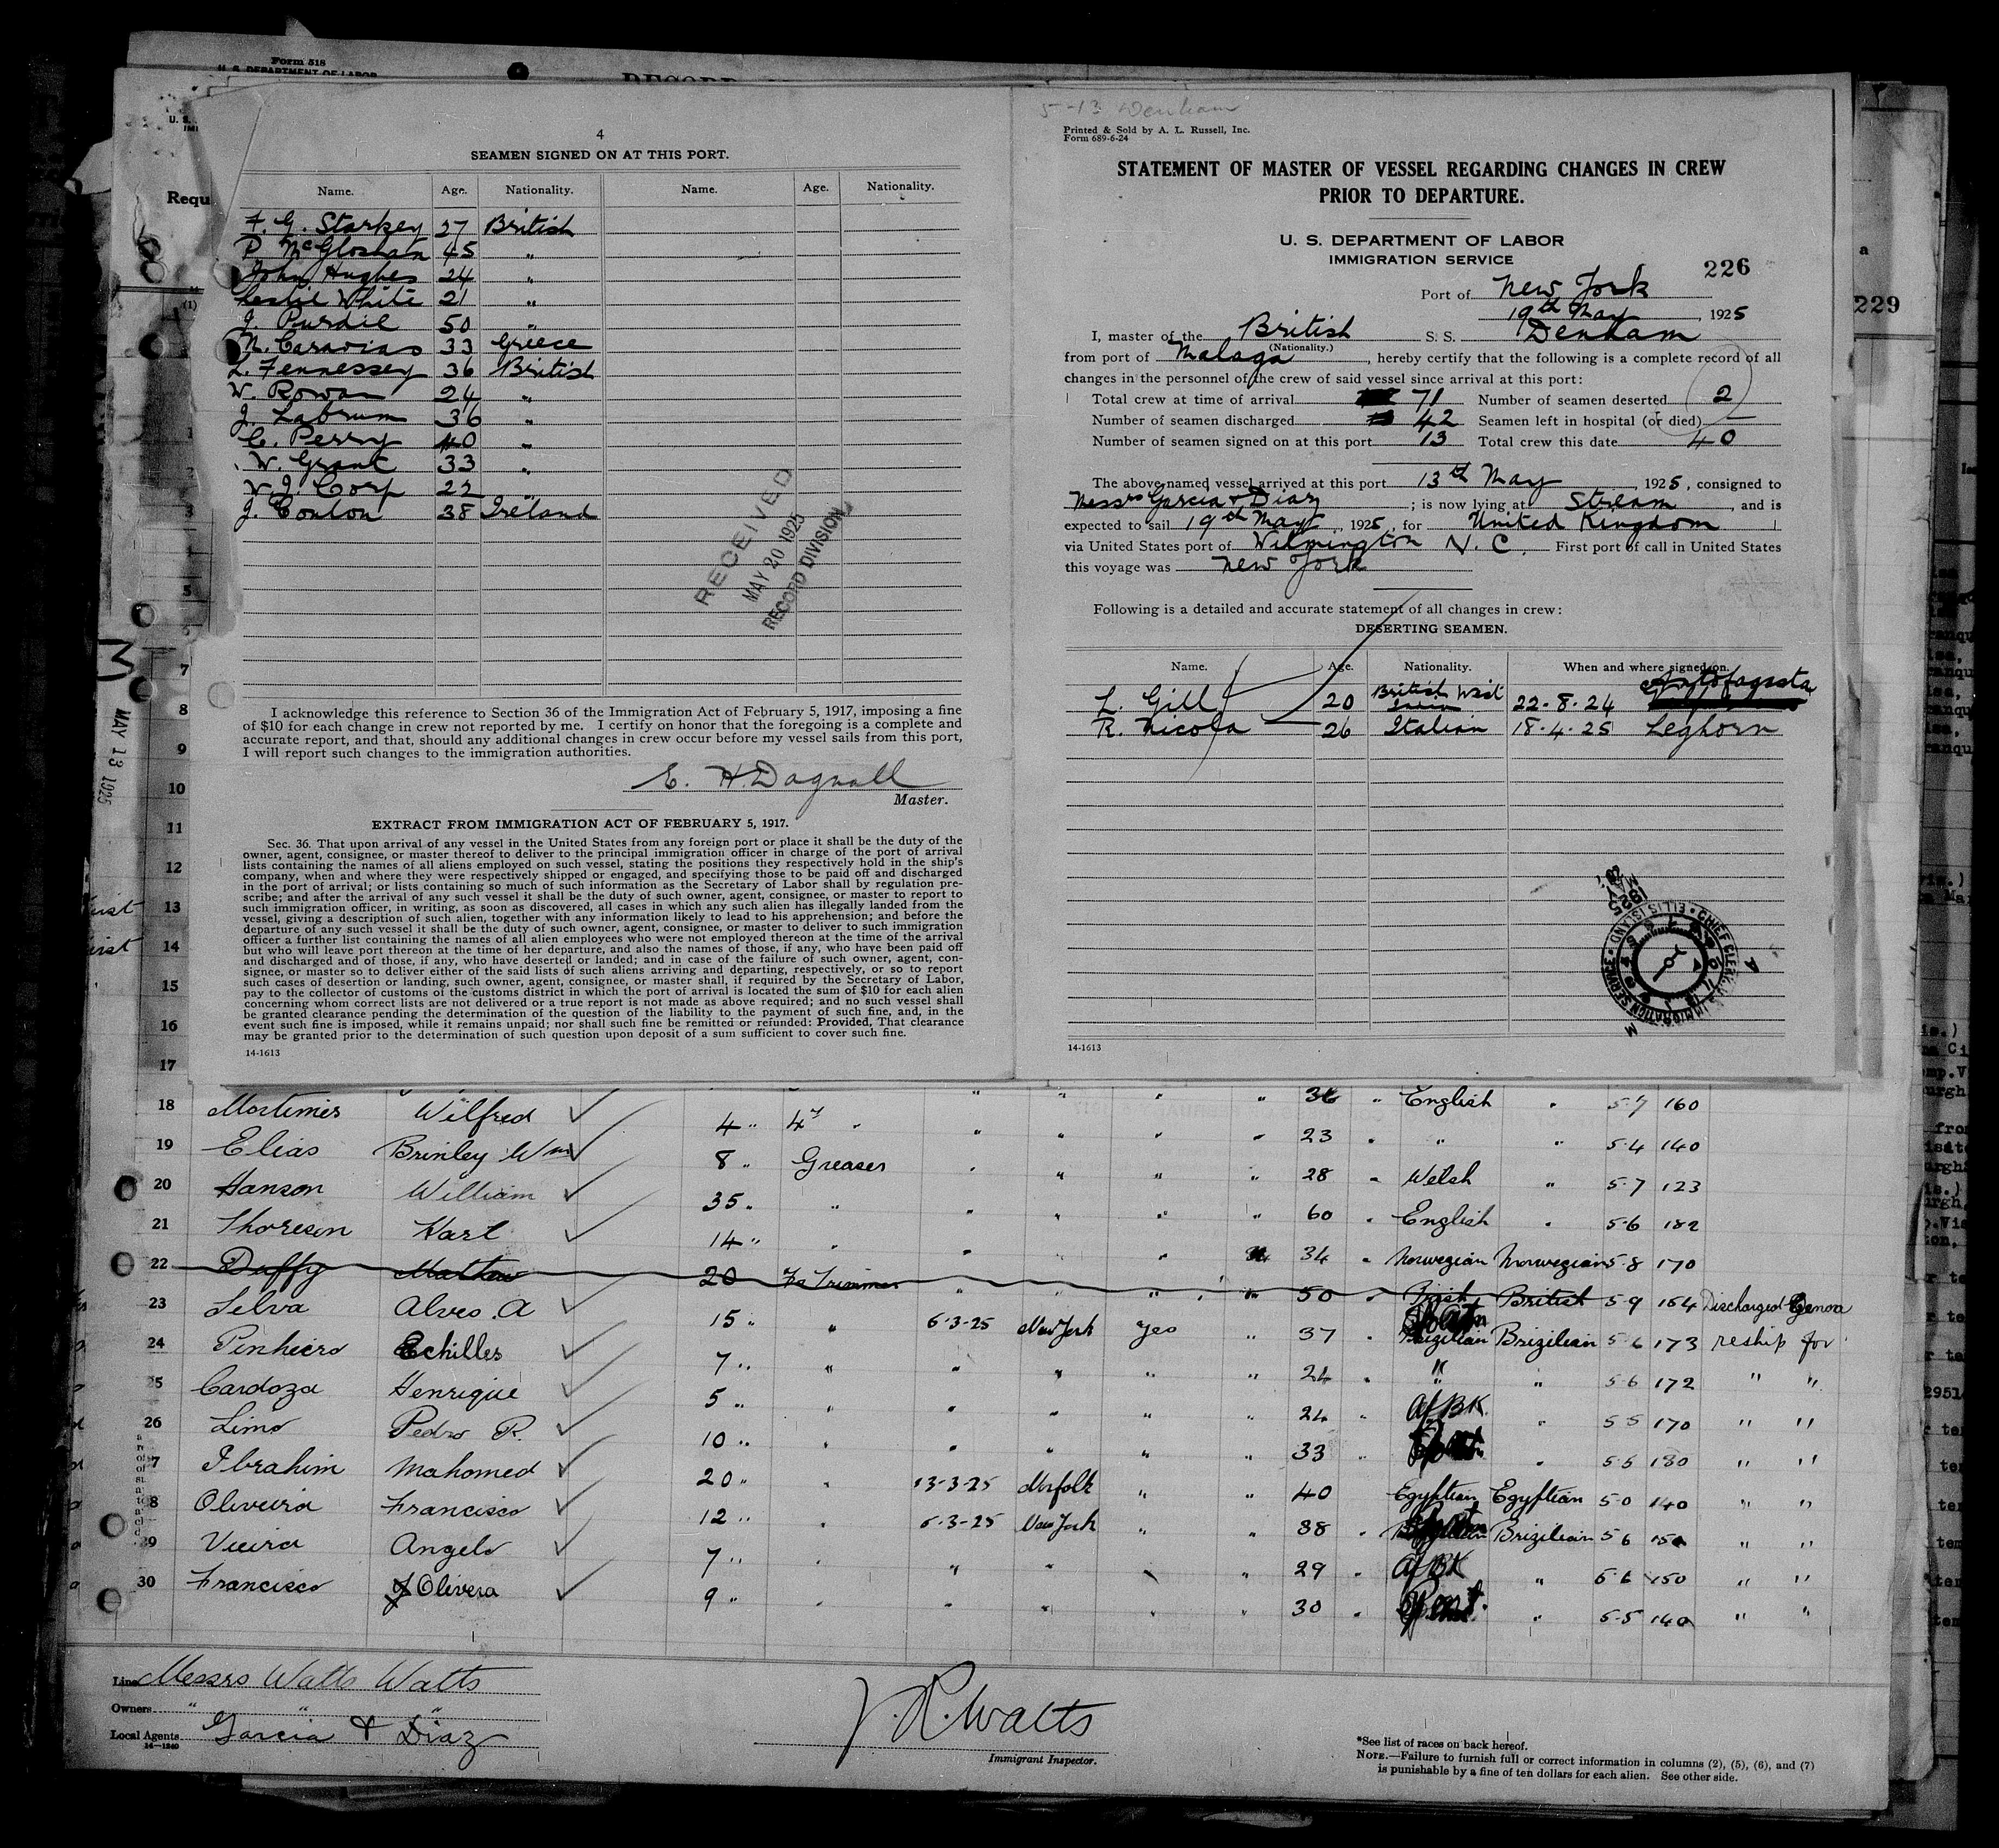 Form 518
U. S. DEPARTMENT OF LABOR
4
SEAMEN SIGNED ON AT THIS PORT.
Name. Age. Nationality. Name. Age. Nationality.
F. G. Starkey 27 British
P. McGloshan 45 "
John Hughes 24 "
Leslie White 21 "
J. Purdie 50 "
N. Caravias 33 Greece
L. Fennessey 36 British
W. Rowan 24 "
J. Labrum 36 "
C. Perry 40 "
W. Grant 33 "
W. J. Corp 22 "
J. Conlon 38 Ireland
RECEIVED
MAY 20 1925
RECORD DIVISION
I acknowledge this reference to Section 36 of the Immigration Act of February 5, 1917, imposing a fine
of $10 for each change in crew not reported by me. I certify on honor that the foregoing is a complete and
accurate report, and that, should any additional changes in crew occur before my vessel sails from this port,
I will report such changes to the immigration authorities.
E. H. Dagnall
Master.
EXTRACT FROM IMMIGRATION ACT OF FEBRUARY 5, 1917.
Sec. 36. That upon arrival of any vessel in the United States from any foreign port or place it shall be the duty of the
owner, agent, consignee, or master thereof to deliver to the principal immigration officer in charge of the port of arrival
lists containing the names of all aliens employed on such vessel, stating the positions they respectively hold in the ship's
company, when and where they were respectively shipped or engaged, and specifying those to be paid off and discharged
in the port of arrival; or lists containing so much of such information as the Secretary of Labor shall by regulation pre-
scribe; and after the arrival of any such vessel it shall be the duty of such owner, agent, consignee, or master to report to
such immigration officer, in writing, as soon as discovered, all cases in which any such alien has illegally landed from the
vessel, giving a description of such alien, together with any information likely to lead to his apprehension; and before the
departure of any such vessel it shall be the duty of such owner, agent, consignee, or master to deliver to such immigration
officer a further list containing the names of all alien employees who were not employed thereon at the time of the arrival
but who will leave port thereon at the time of her departure, and also the names of those, if any, who have been paid off
and discharged and of those, if any, who have deserted or landed; and in case of the failure of such owner, agent, con-
signee, or master so to deliver either of the said lists of such aliens arriving and departing, respectively, or so to report
such cases of desertion or landing, such owner, agent, consignee, or master shall, if required by the Secretary of Labor,
pay to the collector of customs of the customs district in which the port of arrival is located the sum of $10 for each alien
concerning whom correct lists are not delivered or a true report is not made as above required; and no such vessel shall
be granted clearance pending the determination of the question of the liability to the payment of such fine, and, in the
event such fine is imposed, while it remains unpaid; nor shall such fine be remitted or refunded: Provided, That clearance
may be granted prior to the determination of such question upon deposit of a sum sufficient to cover such fine.
14-1613
5-13 Denham
Printed & Sold by A. L. Russell, Inc.
Form 689-6-24
STATEMENT OF MASTER OF VESSEL REGARDING CHANGES IN CREW
PRIOR TO DEPARTURE.
U. S. DEPARTMENT OF LABOR
IMMIGRATION SERVICE
226
Port of New York
19th May, 1925
I, master of the British S. S. Denham
(Nationality.)
from port of Malaga, hereby certify that the following is a complete record of all
changes in the personnel of the crew of said vessel since arrival at this port:
Total crew at time of arrival 71 Number of seamen deserted 2
Number of seamen discharged 42 Seamen left in hospital (or died) —
Number of seamen signed on at this port 13 Total crew this date 40
The above-named vessel arrived at this port 13th May, 1925, consigned to
Messrs Garcia & Diaz; is now lying at Stream, and is
expected to sail 19th May, 1925, for United Kingdom
via United States port of Wilmington N. C. First port of call in United States
this voyage was New York
Following is a detailed and accurate statement of all changes in crew:
DESERTING SEAMEN.
Name. Age. Nationality. When and where signed on.
L. Gill 20 British West 22-8-24 Antofagasta
R. Nicola 26 Italian 18-4-25 Leghorn
14-1613
229
Requ
MAY 13 1925
7
8
9
10
11
12
13
14
15
16
17
18 Mortimer Wilfred 4 " 4th " " " " " 36 " English " 5-7 160
19 Elias Brinley Wm 8 " Greaser " " " " 23 " " " 5-4 140
20 Hanson William 35 " " " " " " 28 " Welsh " 5-7 123
21 Thoresen Karl 14 " " " " " " 60 " English " 5-6 182
22 Duffy Mathew 20 Fs Trimmer " " " 34 " Norwegian Norwegian 5-8 170
23 Selva Alves. A 15 " " " " " " 50 " Irish British 5-9 154 Discharged Genoa
24 Pinheiro Echilles 7 " " 6-3-25 New York Yes " 37 " Brizilian Brizilian 5-6 173 reship for
25 Cardoza Henrique 5 " " " " " " 24 " " " 5-6 172 " "
26 Lima Pedro R. 10 " " " " " " 24 " Af BK " 5-5 170 " "
27 Ibrahim Mahomed 20 " " " " " " 33 " " 5-5 180 " "
28 Oliveira Francisco 12 " " 13-3-25 Norfolk " " 40 Egyptian Egyptian 5-0 140 " "
29 Vieira Angelo 7 " " 6-3-25 New York " " 38 " Brizilian 5-6 150 " "
30 Francisco J Olivera 9 " " " " " " 29 " Af BK " 5-6 150 " "
" " " " 30 " " 5-5 140 " "
Line Messrs Watts Watts
Owners " " "
Local Agents Garcia & Diaz
14-1240
J. R. Watts
Immigrant Inspector.
*See list of races on back hereof.
NOTE.—Failure to furnish full or correct information in columns (2), (5), (6), and (7)
is punishable by a fine of ten dollars for each alien. See other side.